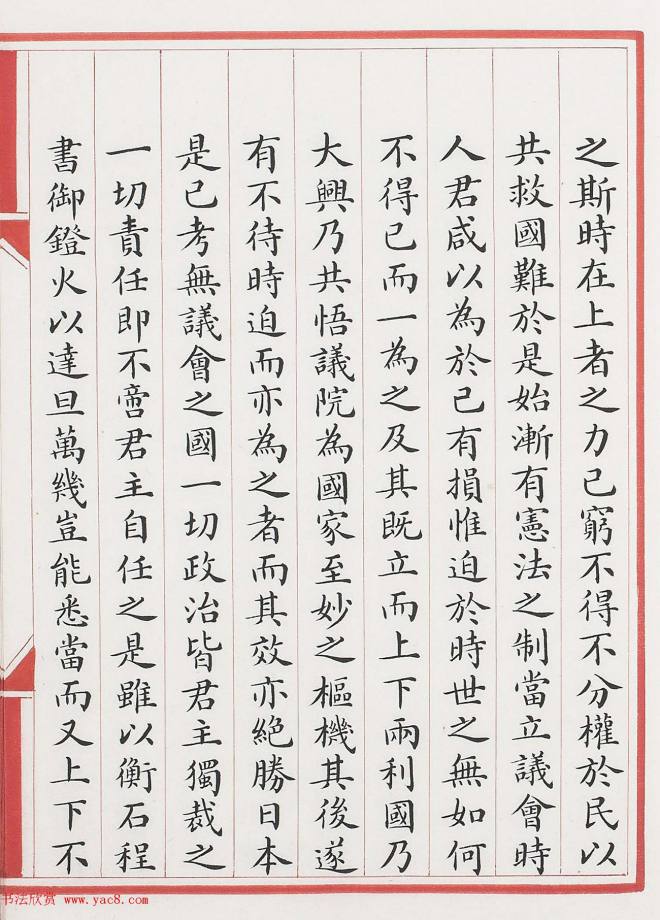 之斯時在上者之力已窮不得不分權於民以
共救國難於是始漸有憲法之制當立議會時
人君咸以為於己有損惟迫於時世之無如何
不得已而一為之及其既立而上下兩利國乃
大興乃共悟議院為國家至妙之樞機其後遂
有不待時迫而亦為之者而其效亦絕勝日本
是已考無議會之國一切政治皆君主獨裁之
一切責任即不啻君主自任之是雖以衡石程
書御鐙火以達旦萬幾豈能悉當而又上下不
书法欣赏 www.yac8.com